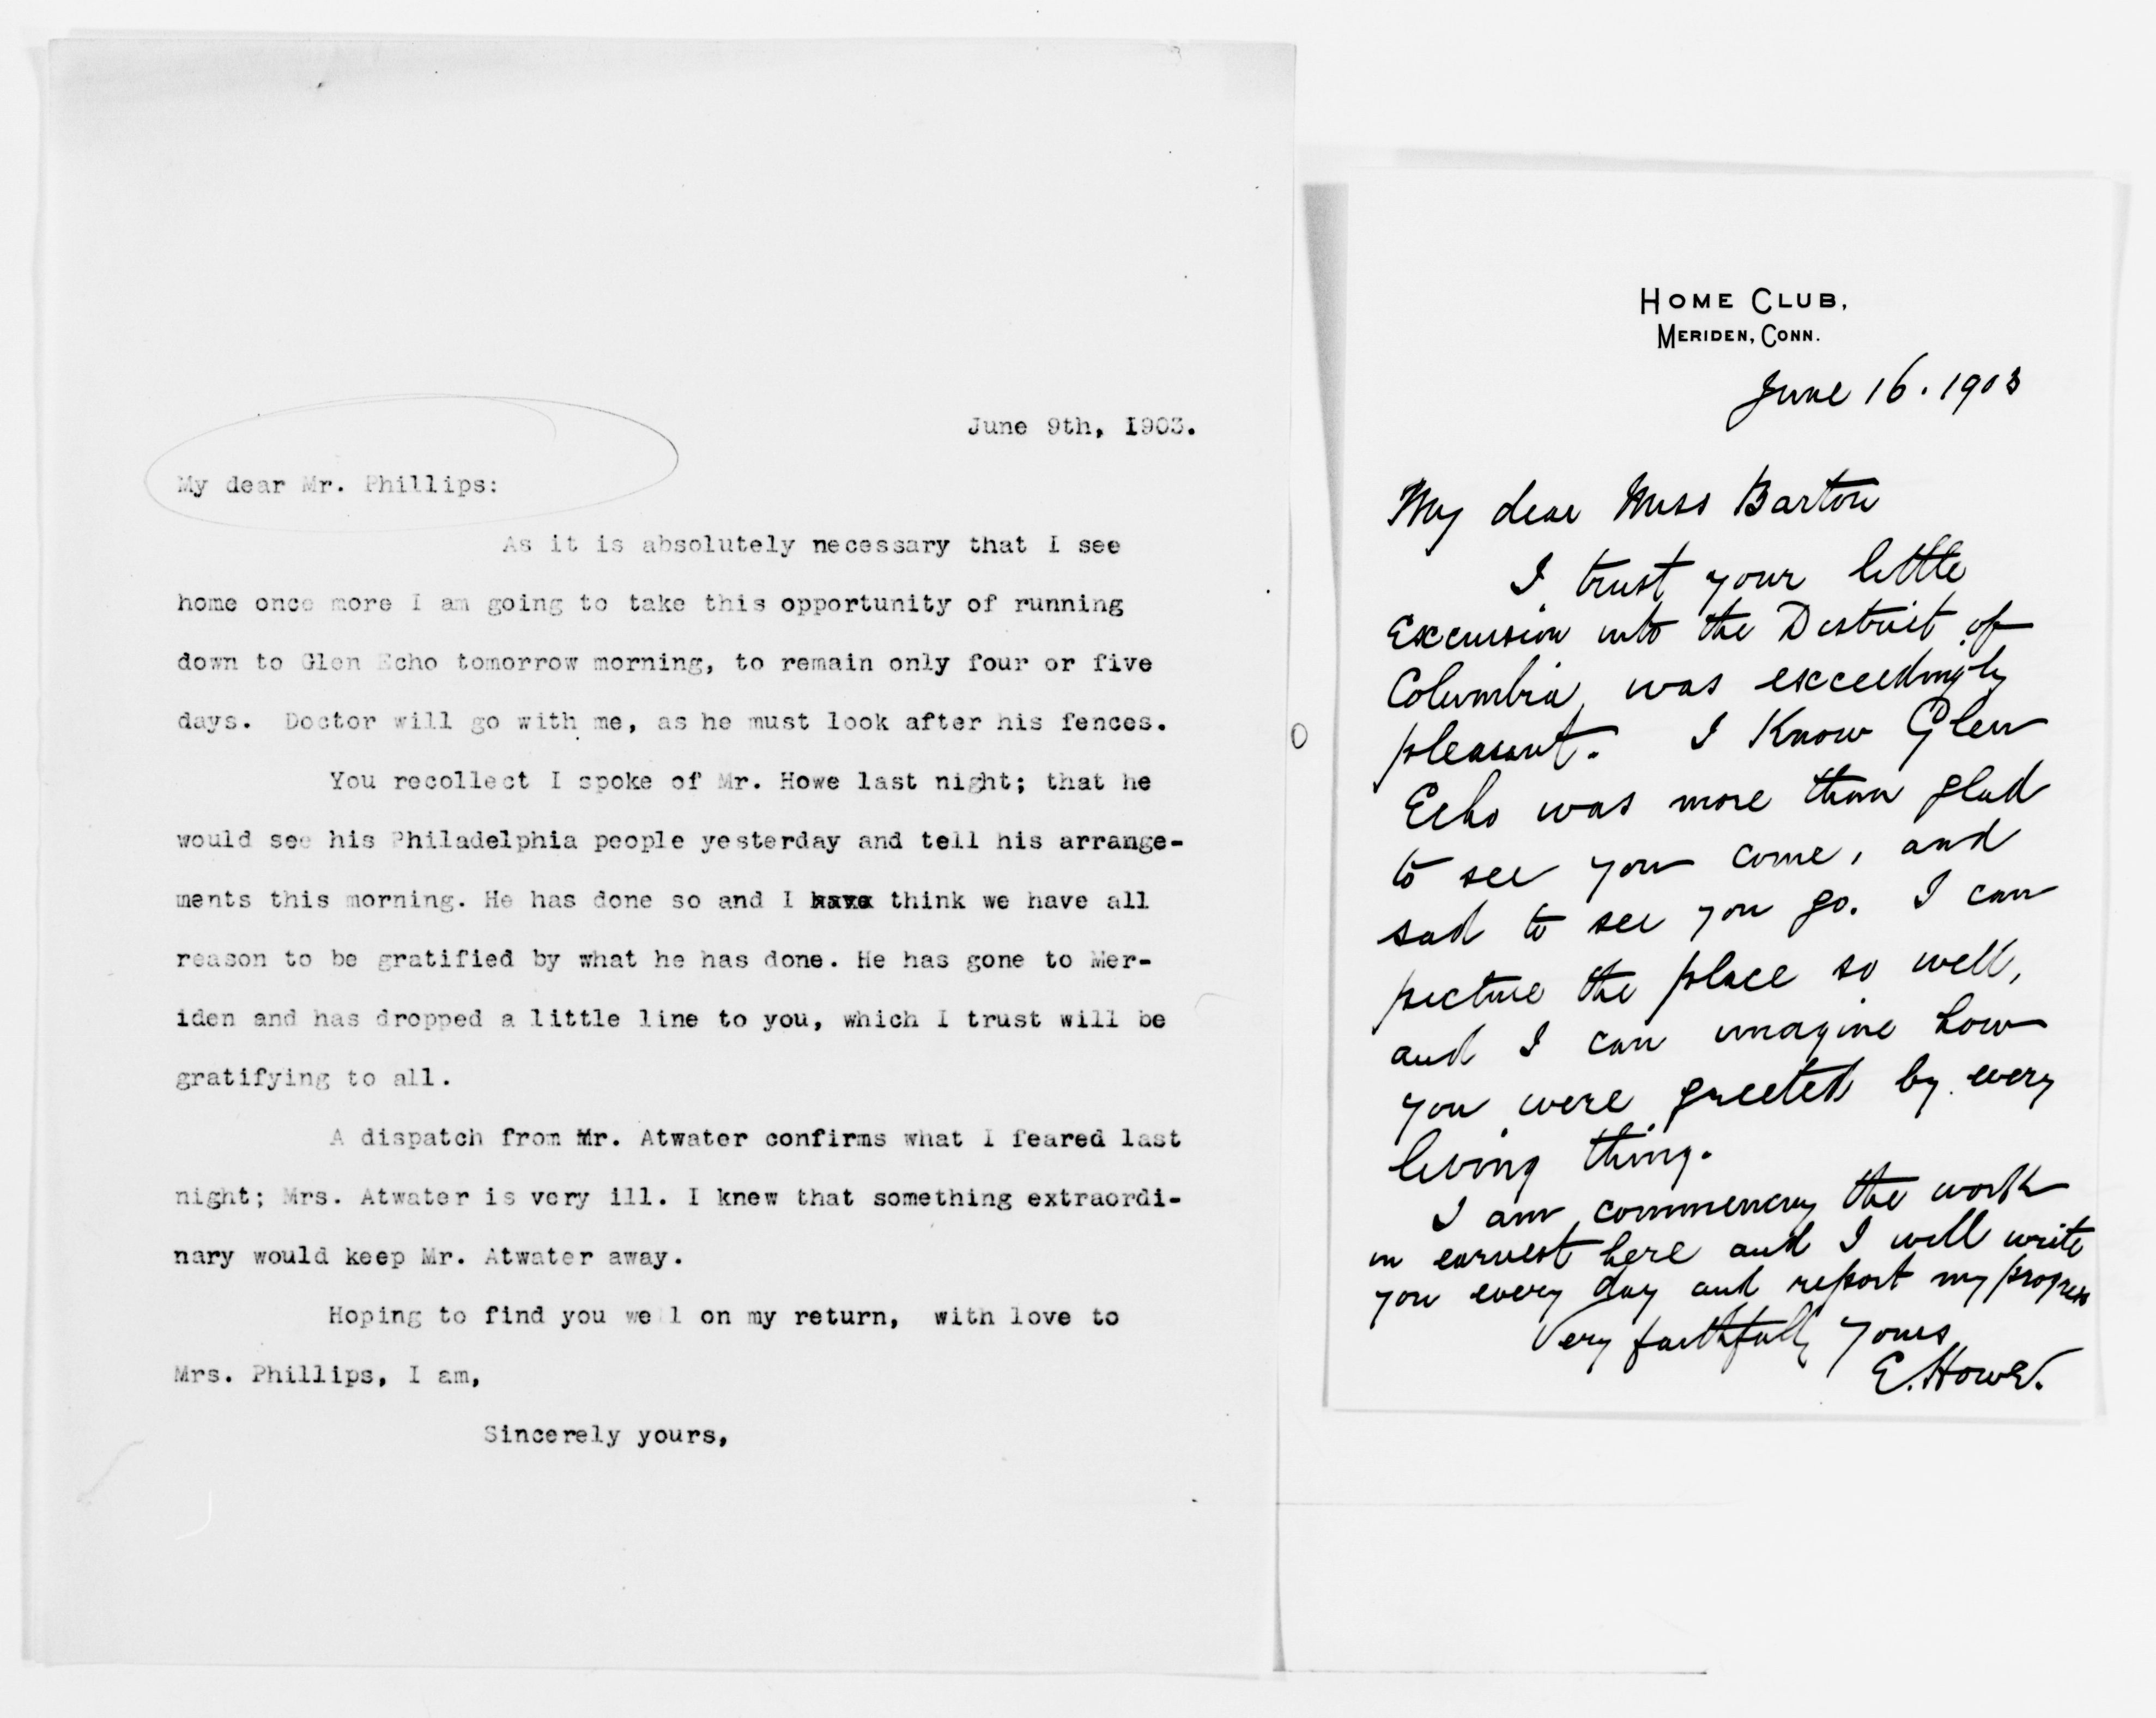 June 9th, 1903.
My dear Mr. Phillips:
As it is absolutely necessary that I see
home once more I am going to take this opportunity of running
down to Glen Echo tomorrow morning, to remain only four or five
days. Doctor will go with me, as he must look after his fences.
You recollect I spoke of Mr. Howe last night; that he
would see his Philadelphia people yesterday and tell his arrange-
ments this morning. He has done so and I have think we have all
reason to be gratified by what he has done. He has gone to Mer-
iden and has dropped a little line to you, which I trust will be
gratifying to all.
A dispatch from Mr. Atwater confirms what I feared last
night; Mrs. Atwater is very ill. I knew that something extraordi-
nary would keep Mr. Atwater away.
Hoping to find you well on my return, with love to
Mrs. Phillips, I am,
Sincerely yours,
HOME CLUB,
MERIDEN, CONN.
June 16. 1903
My dear Miss Barton
I trust your little
Excursion into the District of
Columbia was exceedingly
pleasant. I Know Glen
Echo was more than glad
to see you come, and
sad to see you go. I can
picture the place so well,
and I can imagine how
you were greeted by every
living thing.
I am commencing the work
in earnest here and I will write
you every day and report my progress
Very faithfully Yours
E. Howe.